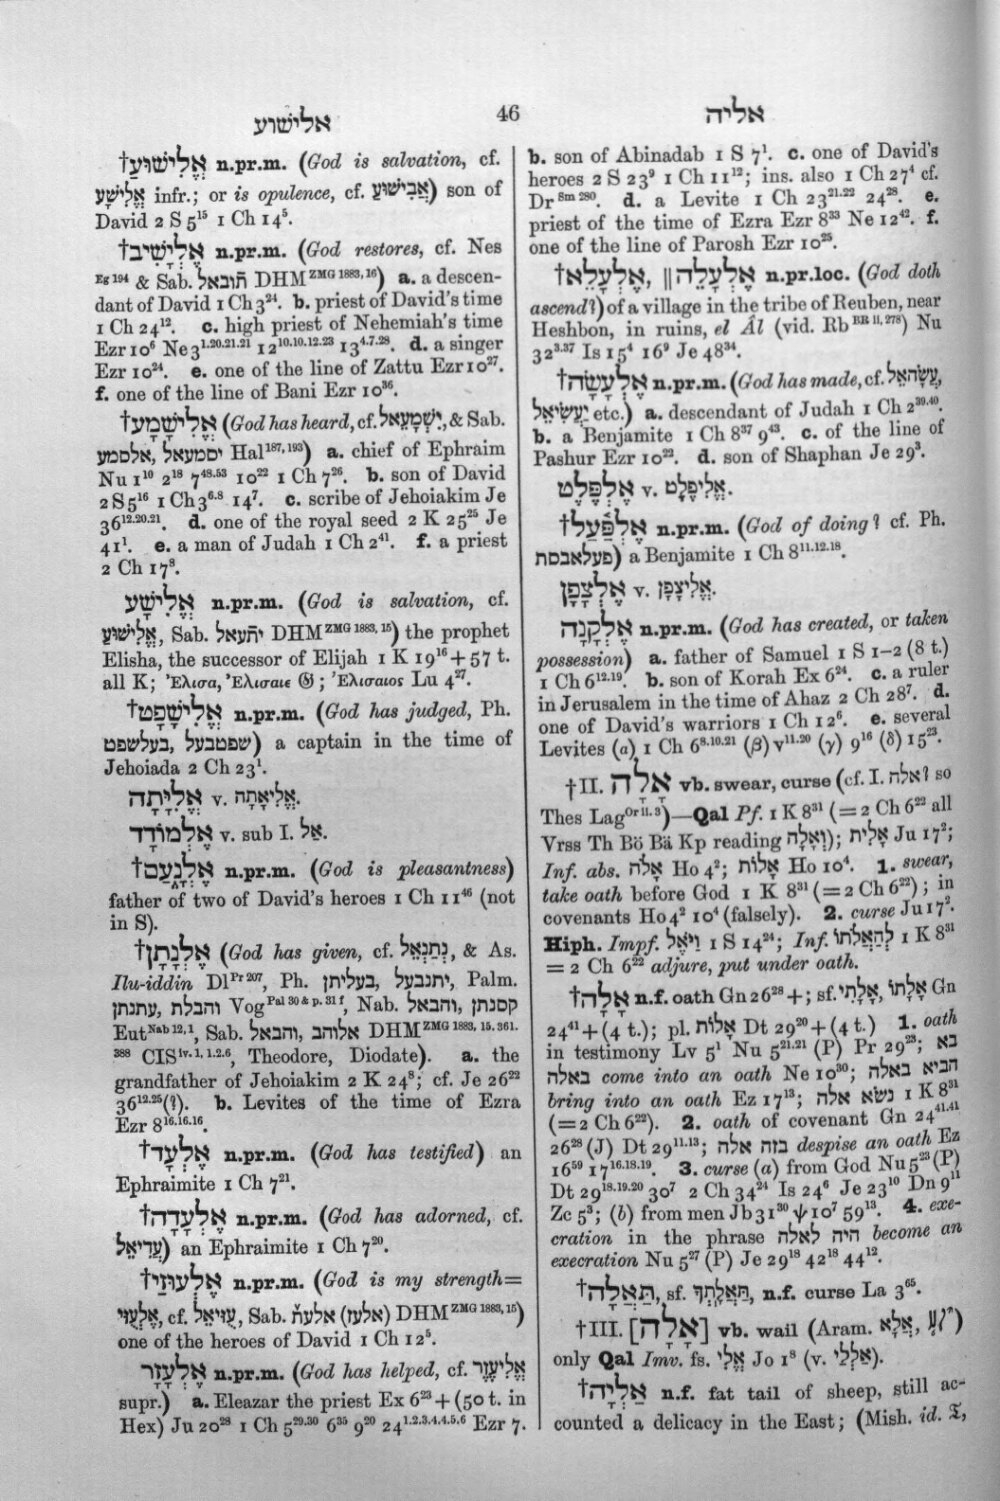 אלישוע 46 אליה
†אֱלִישׁוּעַ n.pr.m. (God is salvation, cf.
אֱלִישָׁע infr.; or is opulence, cf. אֲבִישׁוּעַ) son of
David 2 S 5¹⁵ 1 Ch 14⁵.
†אֶלְיָשִׁיב n.pr.m. (God restores, cf. Nes
Eg 194 & Sab. DHM ZMG 1883, 16) a. a descen-
dant of David 1 Ch 3²⁴. b. priest of David's time
1 Ch 24¹². c. high priest of Nehemiah's time
Ezr 10⁶ Ne 3¹·²⁰·²¹·²¹ 12¹⁰·¹⁰·¹²·²³ 13⁴·⁷·²⁸. d. a singer
Ezr 10²⁴. e. one of the line of Zattu Ezr 10²⁷.
f. one of the line of Bani Ezr 10³⁶.
†אֱלִישָׁמָע (God has heard, cf. יִשְׁמָעֵאל, & Sab.
יסמעאל, אלסמע Hal 187, 193) a. chief of Ephraim
Nu 1¹⁰ 2¹⁸ 7⁴⁸·⁵³ 10²² 1 Ch 7²⁶. b. son of David
2 S 5¹⁶ 1 Ch 3⁶·⁸ 14⁷. c. scribe of Jehoiakim Je
36¹²·²⁰·²¹. d. one of the royal seed 2 K 25²⁵ Je
41¹. e. a man of Judah 1 Ch 2⁴¹. f. a priest
2 Ch 17⁸.
אֱלִישָׁע n.pr.m. (God is salvation, cf.
אֱלִישׁוּעַ, Sab. DHM ZMG 1883, 15) the prophet
Elisha, the successor of Elijah 1 K 19¹⁶ + 57 t.
all K; Ἐλισα, Ἐλισαιε 𝔊; Ἐλισαιος Lu 4²⁷.
†אֱלִישָׁפָט n.pr.m. (God has judged, Ph.
שפטבעל, בעלשפט) a captain in the time of
Jehoiada 2 Ch 23¹.
אֱלִיָּתָה v. אֱלִיאָתָה.
אַלְמוֹדָד v. sub I. אַל.
†אֶלְנַעַם n.pr.m. (God is pleasantness)
father of two of David's heroes 1 Ch 11⁴⁶ (not
in S).
†אֶלְנָתָן (God has given, cf. נְתַנְאֵל, & As.
Ilu-iddin Dl Pr 207, Ph. יתנבעל, בעליתן, Palm.
והבלת, עתנתן Vog Pal 30 & p. 31 f, Nab. קסנתן, והבאל
Eut Nab 12, 1, Sab. אלוהב, והבאל DHM ZMG 1883, 15. 361.
388 CIS iv. 1, 1.2.6, Theodore, Diodate). a. the
grandfather of Jehoiakim 2 K 24⁸; cf. Je 26²²
36¹²·²⁵(?). b. Levites of the time of Ezra
Ezr 8¹⁶·¹⁶·¹⁶.
†אֶלְעָד n.pr.m. (God has testified) an
Ephraimite 1 Ch 7²¹.
†אֶלְעָדָה n.pr.m. (God has adorned, cf.
עֲדִיאֵל) an Ephraimite 1 Ch 7²⁰.
†אֶלְעוּזַי n.pr.m. (God is my strength=
אֶלְעֻזִּי, cf. עֻזִּיאֵל, Sab. (אלעז) DHM ZMG 1883, 15)
one of the heroes of David 1 Ch 12⁵.
†אֶלְעָזָר n.pr.m. (God has helped, cf. אֱלִיעֶזֶר
supr.) a. Eleazar the priest Ex 6²³ + (50 t. in
Hex) Ju 20²⁸ 1 Ch 5²⁹·³⁰ 6³⁵ 9²⁰ 24¹·²·³·⁴·⁴·⁵·⁶ Ezr 7.
b. son of Abinadab 1 S 7¹. c. one of David's
heroes 2 S 23⁹ 1 Ch 11¹²; ins. also 1 Ch 27⁴ cf.
Dr Sm 280. d. a Levite 1 Ch 23²¹·²² 24²⁸. e.
priest of the time of Ezra Ezr 8³³ Ne 12⁴². f.
one of the line of Parosh Ezr 10²⁵.
†אֶלְעָלֵא, ‖ אֶלְעָלֵה n.pr.loc. (God doth
ascend?) of a village in the tribe of Reuben, near
Heshbon, in ruins, el Âl (vid. Rb BR II, 278) Nu
32³·³⁷ Is 15⁴ 16⁹ Je 48³⁴.
†אֶלְעָשָׂה n.pr.m. (God has made, cf. עֲשָׂהאֵל,
יַעֲשִׂיאֵל etc.) a. descendant of Judah 1 Ch 2³⁹·⁴⁰.
b. a Benjamite 1 Ch 8³⁷ 9⁴³. c. of the line of
Pashur Ezr 10²². d. son of Shaphan Je 29³.
אֶלְפֶּלֶט v. אֱלִיפֶלֶט.
†אֶלְפַּעַל n.pr.m. (God of doing? cf. Ph.
פעלאבסת) a Benjamite 1 Ch 8¹¹·¹²·¹⁸.
אֶלְצָפָן v. אֱלִיצָפָן.
אֶלְקָנָה n.pr.m. (God has created, or taken
possession) a. father of Samuel 1 S 1–2 (8 t.)
1 Ch 6¹²·¹⁹. b. son of Korah Ex 6²⁴. c. a ruler
in Jerusalem in the time of Ahaz 2 Ch 28⁷. d.
one of David's warriors 1 Ch 12⁶. e. several
Levites (a) 1 Ch 6⁸·¹⁰·²¹ (β) v¹¹·²⁰ (γ) 9¹⁶ (δ) 15²³.
†II. אָלָה vb. swear, curse (cf. I. אלה? so
Thes Lag Or ii. 3)—Qal Pf. 1 K 8³¹ (= 2 Ch 6²² all
Vrss Th Bö Bä Kp reading וְאָלָה); אָלִית Ju 17²;
Inf. abs. אָלֹה Ho 4²; אָלוֹת Ho 10⁴. 1. swear,
take oath before God 1 K 8³¹ (= 2 Ch 6²²); in
covenants Ho 4² 10⁴ (falsely). 2. curse Ju 17².
Hiph. Impf. וַיֹּאֶל 1 S 14²⁴; Inf. לְהַאֲלֹתוֹ 1 K 8³¹
= 2 Ch 6²² adjure, put under oath.
†אָלָה n.f. oath Gn 26²⁸ +; sf. אָלָתוֹ, אָלָתִי Gn
24⁴¹ + (4 t.); pl. אָלוֹת Dt 29²⁰ + (4 t.) 1. oath
in testimony Lv 5¹ Nu 5²¹·²¹ (P) Pr 29²³; בא
באלה come into an oath Ne 10³⁰; הביא באלה
bring into an oath Ez 17¹³; נשׂא אלה 1 K 8³¹
(= 2 Ch 6²²). 2. oath of covenant Gn 24⁴¹·⁴¹
26²⁸ (J) Dt 29¹¹·¹³; בזה אלה despise an oath Ez
16⁵⁹ 17¹⁶·¹⁸·¹⁹. 3. curse (a) from God Nu 5²³ (P)
Dt 29¹⁸·¹⁹·²⁰ 30⁷ 2 Ch 34²⁴ Is 24⁶ Je 23¹⁰ Dn 9¹¹
Zc 5³; (b) from men Jb 31³⁰ ψ 10⁷ 59¹³. 4. exe-
cration in the phrase היה לאלה become an
execration Nu 5²⁷ (P) Je 29¹⁸ 42¹⁸ 44¹².
†תַּאֲלָה, sf. תַּאֲלָתְךָ, n.f. curse La 3⁶⁵.
†III. [אָלָה] vb. wail (Aram. אֲלָא,)
only Qal Imv. fs. אֱלִי Jo 1⁸ (v. אַלְלַי).
†אַלְיָה n.f. fat tail of sheep, still ac-
counted a delicacy in the East; (Mish. id. 𝔗,